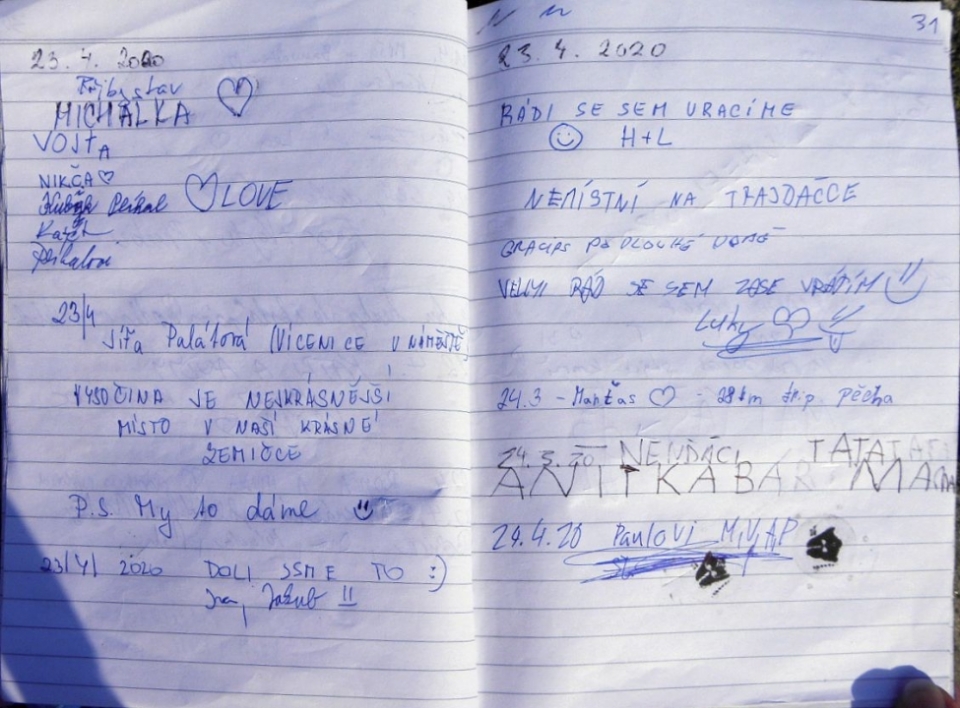 23. 4. 2020
Přibyslav
MICHALKA
VOJTA
NIKČA
LOVE
Pekalovi
23/4
Jiřa Palátová (VÍCENICE U NÁMĚŠTĚ)
VYSOČINA JE NEJKRÁSNĚJŠÍ
MÍSTO V NAŠÍ KRÁSNÉ
ZEMIČCE
P.S. My to dáme
23/4/ 2020 DOLI JSME TO :)
Jakub
31
23. 4. 2020
RÁDI SE SEM VRACÍME
H+L
NEMÍSTNÍ NA TRAJDAČCE
GRACIAS PO DLOUHÉ DOBĚ
VELMI RÁD SE SEM ZASE VRÁTÍM
Luky
24.3 - Mantas - 28km trip pěcha
TATA
ANITKA BÁRA MAMA
29.4.20 Paulovi M,V,A,P